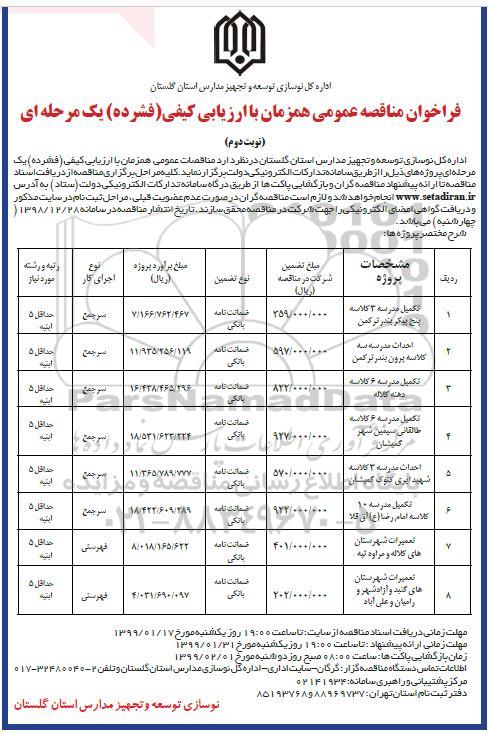 اداره کل نوسازی توسعه و تجهیز مدارس استان گلستان
فراخوان مناقصه عمومی همزمان با ارزیابی کیفی (فشرده) یک مرحله ای
(نوبت دوم)
اداره کل نوسازی توسعه و تجهیز مدارس استان گلستان در نظر دارد مناقصات عمومی همزمان با ارزیابی کیفی (فشرده) یک
مرحله ای پروژه های ذیل را از طریق سامانه تدارکات الکترونیکی دولت برگزار نماید. کلیه مراحل برگزاری مناقصه از دریافت اسناد
مناقصه تا ارائه پیشنهاد مناقصه گران و بازگشایی پاکت ها از طریق درگاه سامانه تدارکات الکترونیکی دولت (ستاد) به آدرس
www.setadiran.ir انجام خواهد شد و لازم است مناقصه گران در صورت عدم عضویت قبلی، مراحل ثبت نام در سایت مذکور
و دریافت گواهی امضای الکترونیکی را جهت شرکت در مناقصه محقق سازند. تاریخ انتشار مناقصه در سامانه ۱۳۹۸/۱۲/۲۸ (
چهارشنبه) می باشد.
شرح مختصر پروژه ها:
ردیف مشخصات پروژه مبلغ تضمین شرکت در مناقصه (ریال) نوع تضمین مبلغ برآورد پروژه (ریال) نوع اجرای کار رتبه و رشته مورد نیاز
۱ تکمیل مدرسه ۳ کلاسه پنج پیکر بندر ترکمن ۳۵۹/۰۰۰/۰۰۰ ضمانت نامه بانکی ۷/۱۶۶/۷۶۲/۴۶۷ سرجمع حداقل ۵ ابنیه
۲ احداث مدرسه سه کلاسه پرون بندر ترکمن ۵۹۷/۰۰۰/۰۰۰ ضمانت نامه بانکی ۱۱/۹۳۵/۲۵۶/۱۱۹ سرجمع حداقل ۵ ابنیه
۳ تکمیل مدرسه ۶ کلاسه دهنه کلاله ۸۲۲/۰۰۰/۰۰۰ ضمانت نامه بانکی ۱۶/۴۳۸/۴۶۵/۲۹۶ سرجمع حداقل ۵ ابنیه
۴ تکمیل مدرسه ۶ کلاسه طالقانی سیمین شهر گمیشان ۹۲۷/۰۰۰/۰۰۰ ضمانت نامه بانکی ۱۸/۵۳۱/۶۲۳/۲۲۴ سرجمع حداقل ۵ ابنیه
۵ احداث مدرسه ۳ کلاسه شهید ایری کنوک گمیشان ۵۷۰/۰۰۰/۰۰۰ ضمانت نامه بانکی ۱۱/۳۶۵/۷۸۹/۷۷۷ سرجمع حداقل ۵ ابنیه
۶ تکمیل مدرسه ۱۰ کلاسه امام رضا (ع) آق قلا ۹۲۲/۰۰۰/۰۰۰ ضمانت نامه بانکی ۱۸/۴۲۲/۶۰۹/۲۸۹ سرجمع حداقل ۵ ابنیه
۷ تعمیرات شهرستان های کلاله و مراوه تپه ۴۰۱/۰۰۰/۰۰۰ ضمانت نامه بانکی ۸/۰۱۸/۱۶۵/۶۲۲ فهرستی حداقل ۵ ابنیه
۸ تعمیرات شهرستان های گنبد و آزادشهر و رامیان و علی آباد ۲۰۲/۰۰۰/۰۰۰ ضمانت نامه بانکی ۴/۰۳۱/۶۹۰/۰۹۷ فهرستی حداقل ۵ ابنیه
مهلت زمانی دریافت اسناد مناقصه از سایت: تا ساعت ۱۹:۰۰ روز یکشنبه مورخ ۱۳۹۹/۰۱/۱۷
مهلت زمانی ارائه پیشنهاد: تا ساعت ۱۹:۰۰ روز یکشنبه مورخ ۱۳۹۹/۰۱/۳۱
زمان بازگشایی پاکت ها: ساعت ۰۸:۰۰ صبح روز دوشنبه مورخ ۱۳۹۹/۰۲/۰۱
اطلاعات تماس دستگاه مناقصه گزار: گرگان-سایت اداری-اداره کل نوسازی مدارس استان گلستان و تلفن ۲-۳۲۴۸۰۰۴۰-۰۱۷
مرکز پشتیبانی و راهبری سامانه: ۰۲۱۴۱۹۳۴
دفتر ثبت نام استان تهران: ۸۸۹۶۹۷۳۷ و ۸۵۱۹۳۷۶۸
نوسازی توسعه و تجهیز مدارس استان گلستان